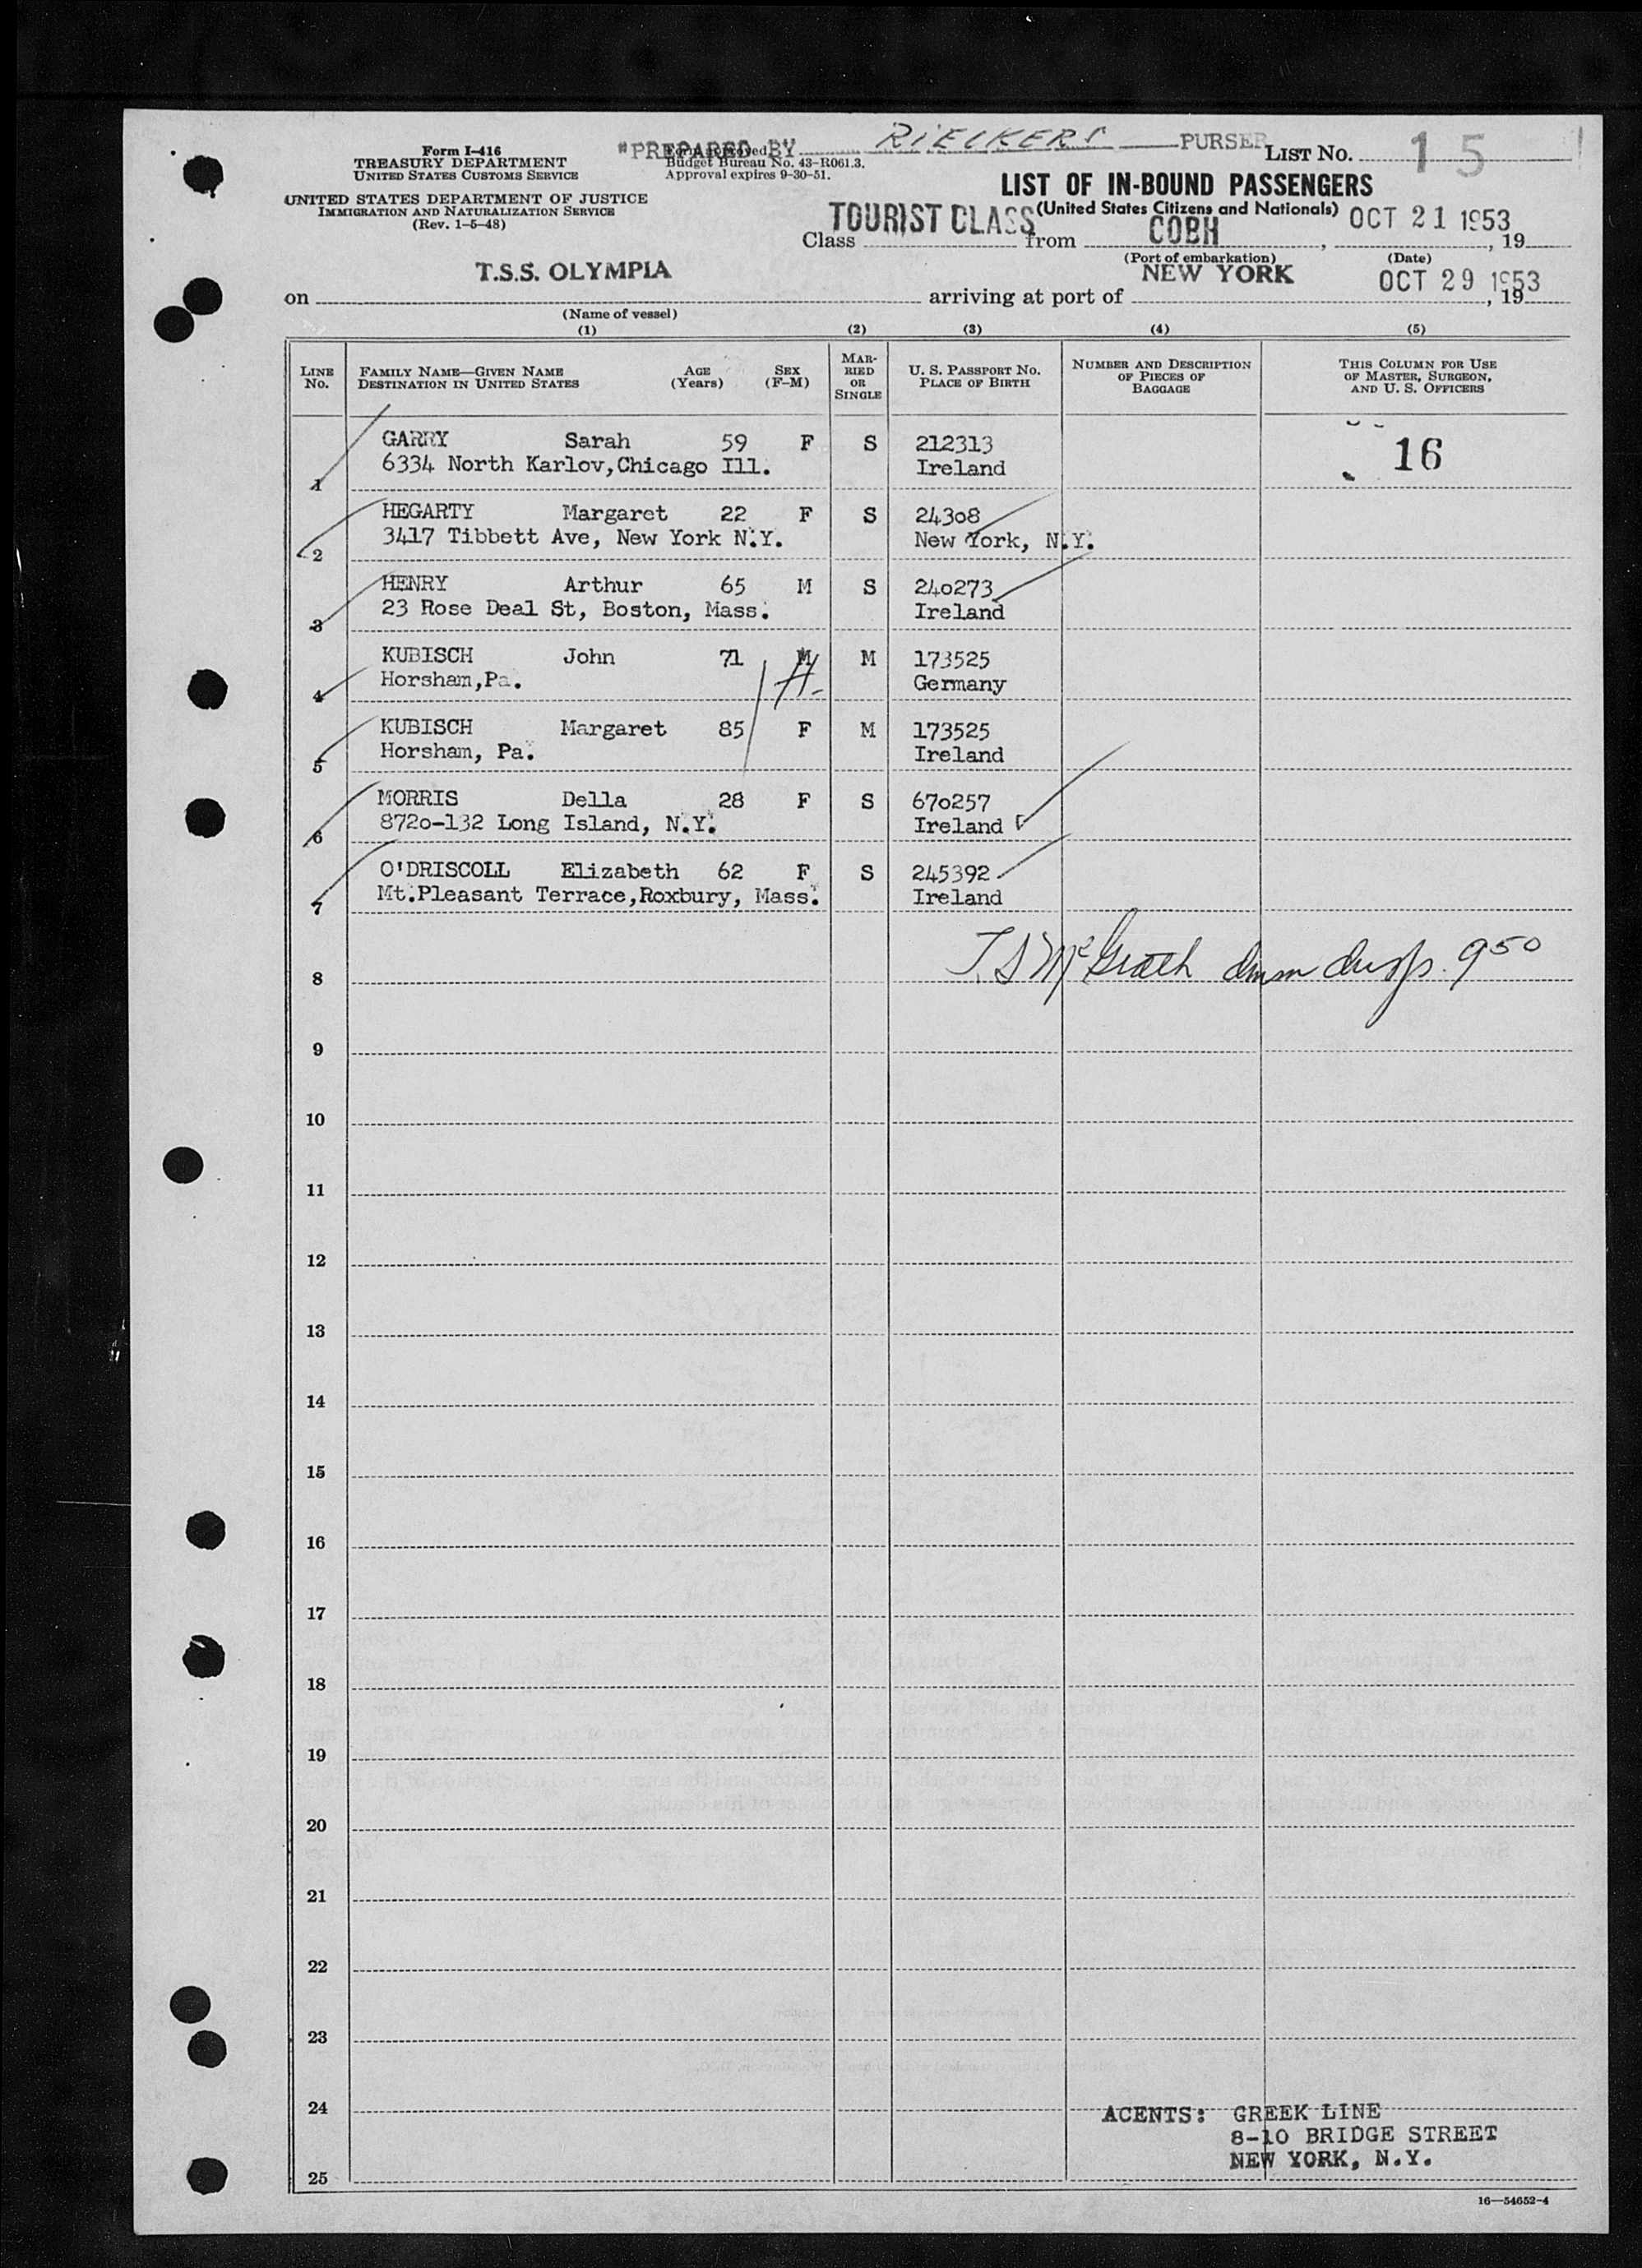 Form I-416
TREASURY DEPARTMENT
UNITED STATES CUSTOMS SERVICE
UNITED STATES DEPARTMENT OF JUSTICE
IMMIGRATION AND NATURALIZATION SERVICE
(Rev. 1-5-48)
"PREPARED BY RIECKERS PURSER
Budget Bureau No. 43-R061.3.
Approval expires 9-30-51.
LIST NO. 15
LIST OF IN-BOUND PASSENGERS
(United States Citizens and Nationals)
Class TOURIST CLASS from COBH, OCT 21 1953, 19
(Port of embarkation) (Date)
on T.S.S. OLYMPIA arriving at port of NEW YORK OCT 29 1953, 19
(Name of vessel)
(1) (2) (3) (4) (5)
LINE NO. FAMILY NAME—GIVEN NAME DESTINATION IN UNITED STATES AGE (Years) SEX (F-M) MARRIED OR SINGLE U. S. PASSPORT NO. PLACE OF BIRTH NUMBER AND DESCRIPTION OF PIECES OF BAGGAGE THIS COLUMN FOR USE OF MASTER, SURGEON, AND U. S. OFFICERS
GARRY Sarah 59 F S 212313 16
1 6334 North Karlov,Chicago Ill. Ireland
HEGARTY Margaret 22 F S 24308
2 3417 Tibbett Ave, New York N.Y. New York, N.Y.
HENRY Arthur 65 M S 240273
3 23 Rose Deal St, Boston, Mass. Ireland
KUBISCH John 71 M M 173525
4 Horsham,Pa. Germany
KUBISCH Margaret 85 F M 173525
5 Horsham, Pa. Ireland
MORRIS Della 28 F S 670257
6 8720-132 Long Island, N.Y. Ireland
O'DRISCOLL Elizabeth 62 F S 245392
7 Mt.Pleasant Terrace,Roxbury, Mass. Ireland
8 McGrath 950
9
10
11
12
13
14
15
16
17
18
19
20
21
22
23
24 ACENTS: GREEK LINE
8-10 BRIDGE STREET
NEW YORK, N.Y.
25
16—54652-4